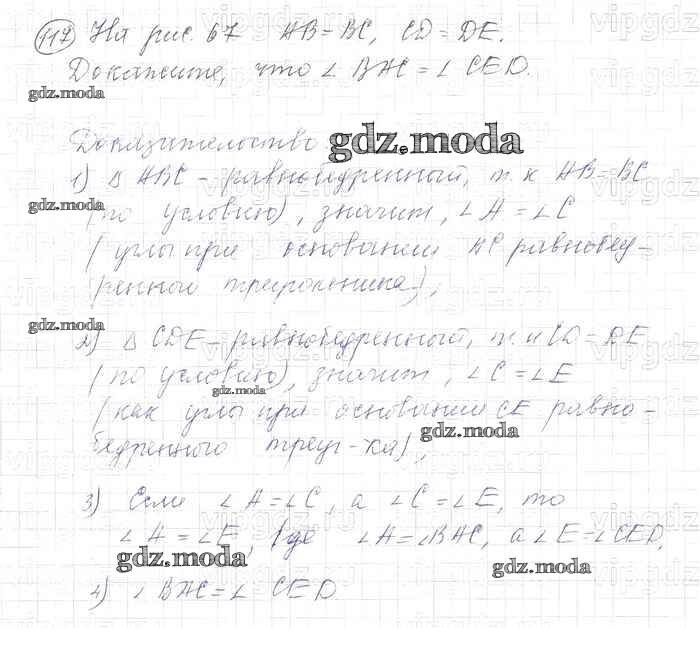 117 На рис. 67 AB = BC, CD = DE.
Докажите, что ∠ BAC = ∠ CED.
gdz.moda
Доказательство
gdz.moda
1) Δ ABC – равнобедренный, т. к AB = BC
gdz.moda
(по условию), значит, ∠ A = ∠ C
(углы при основании AC равнобед-
ренного треугольника),
gdz.moda
2) Δ CDE – равнобедренный, т. к CD = DE
(по условию), значит, ∠ C = ∠ E
gdz.moda
(как углы при основании CE равно-
gdz.moda
бедренного треуг-ка),
3) Если ∠ A = ∠ C, а ∠ C = ∠ E, то
∠ A = ∠ E, где ∠ A = ∠ BAC, а ∠ E = ∠ CED,
gdz.moda
gdz.moda
4) ∠ BAC = ∠ CED.